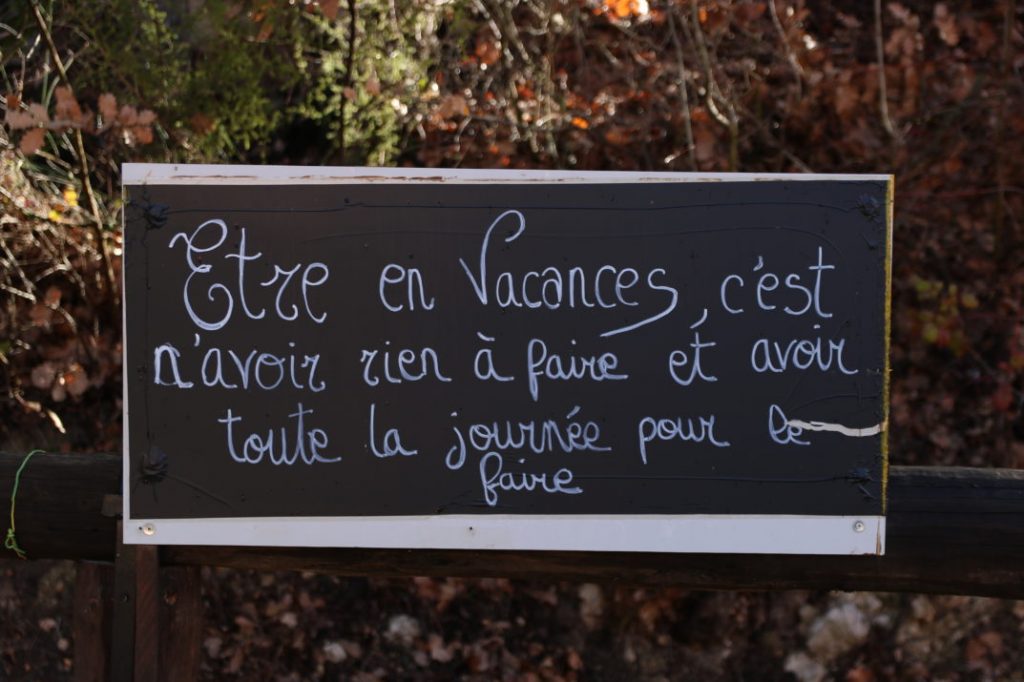 Etre en Vacances, c'est
n'avoir rien à faire et avoir
toute la journée pour le
faire